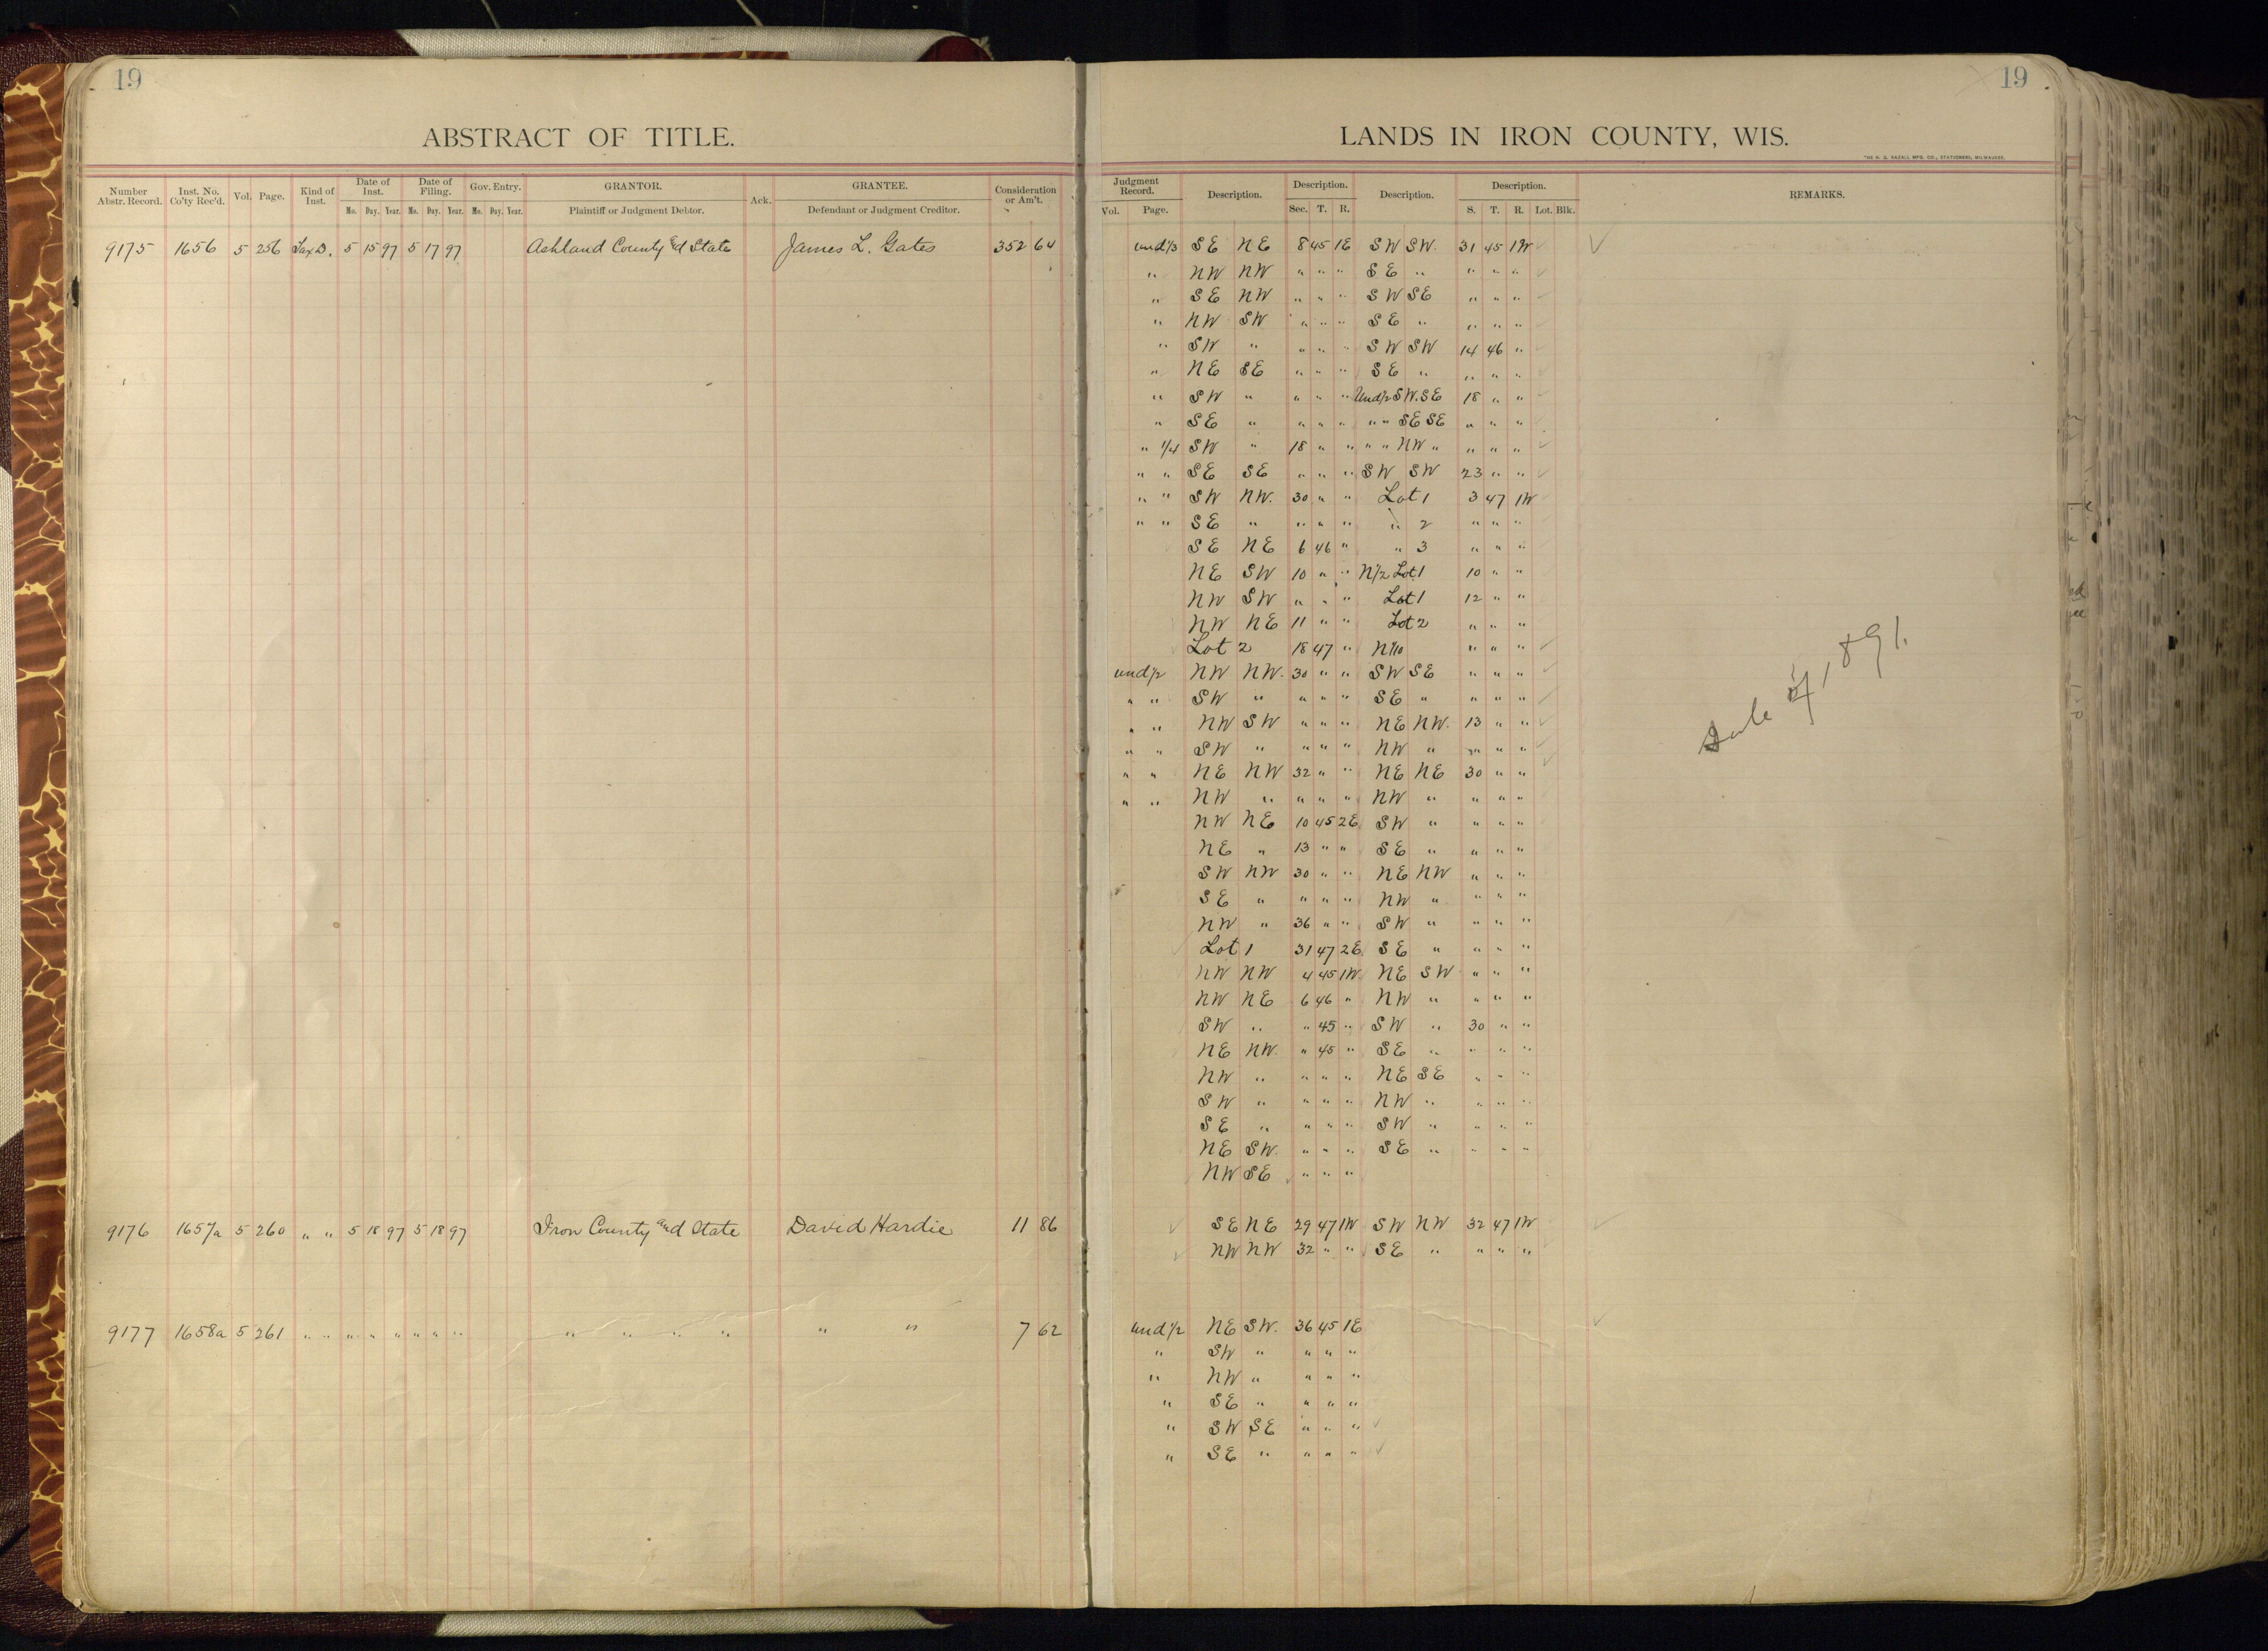 19
19
ABSTRACT OF TITLE.
LANDS IN IRON COUNTY, WIS.
THE H. G. RAZALL MFG. CO., STATIONERS, MILWAUKEE.
Number Abstr. Record. Inst. No. Co'ty Rec'd. Vol. Page. Kind of Inst. Date of Inst. Mo. Day. Year. Date of Filing. Mo. Day. Year. Gov. Entry. Mo. Day. Year. GRANTOR. Plaintiff or Judgment Debtor. Ack. GRANTEE. Defendant or Judgment Creditor. Consideration or Am't.
Judgment Record. Vol. Page. Description. Description. Sec. T. R. Description. Description. S. T. R. Lot. Blk. REMARKS.
9175 1656 5 256 Tax D. 5 15 97 5 17 97 Ashland County and State James L. Gates 352 64 und 1/3 SE NE 8 45 1E SW SW. 31 45 1W ✓ ✓
" NW NW " " " SE " " " " ✓
" SE NW " " " SW SE " " " ✓
" NW SW " " " SE " " " " ✓
" SW " " " " SW SW 14 46 " ✓
" NE SE " " " SE " " " " ✓
" SW " " " " Und 1/2 SW. SE 18 " " ✓
" SE " " " " " " SE SE " " " ✓
" 1/4 SW " 18 " " " " NW " " " " ✓
" " SE SE " " " SW SW 23 " " ✓
" " SW NW. 30 " " Lot 1 3 47 1W
" " SE " " " " " 2 " " "
SE NE 6 46 " " 3 " " "
NE SW 10 " " N 1/2 Lot 1 10 " "
NW SW " " " Lot 1 12 " "
NW NE 11 " " Lot 2 " " "
Lot 2 18 47 " " " " ✓
und 1/2 NW NW. 30 " " SW SE " " " ✓
" " SW " " " " SE " " " " ✓
" " NW SW " " " NE NW. 13 " " ✓
" " SW " " " " NW " " " " ✓
" " NE NW 32 " " NE NE 30 " " ✓
" " NW " " " " NW " " " "
NW NE 10 45 2E SW " " " "
NE " 13 " " SE " " " "
SW NW 30 " " NE NW " " "
SE " " " " NW " " " "
NW " 36 " " SW " " " "
Lot 1 31 47 2E SE " " " "
NW NW 4 45 1W NE SW " " "
NW NE 6 46 " NW " " " "
SW " " 45 " SW " 30 " "
NE NW. " 45 " SE " " " "
NW " " " " NE SE " " "
SW " " " " NW " " " "
SE " " " " SW " " " "
NE SW. " " " SE " " " "
NW SE " " "
Sale of 1891.
9176 1657a 5 260 " " 5 18 97 5 18 97 Iron County and State David Hardie 11 86 ✓ SE NE 29 47 1W SW NW 32 47 1W ✓
✓ NW NW 32 " " SE " " " "
9177 1658a 5 261 " " " " " " " " " " " " " " 7 62 und 1/2 NE SW. 36 45 1E ✓
" SW " " " "
" NW " " " "
" SE " " " "
" SW SE " " " ✓
" SE " " " " ✓